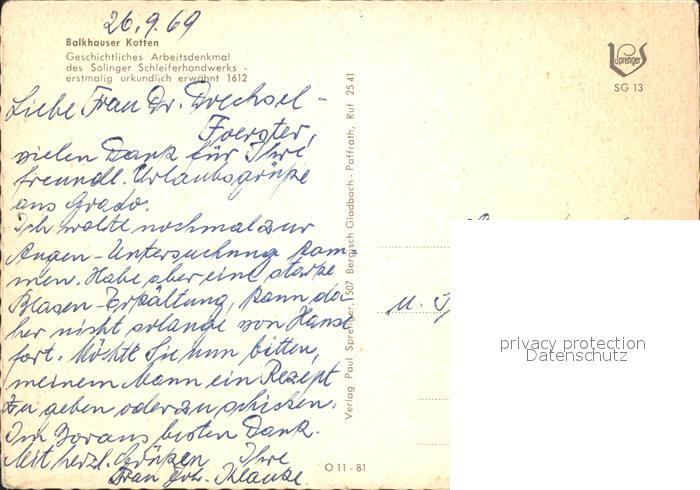 26.9.69
Balkhauser Kotten
Geschichtliches Arbeitsdenkmal
des Solinger Schleiferhandwerks -
erstmalig urkundlich erwähnt 1612
Liebe Frau Dr. Drechsel -
Foerster,
vielen Dank für Ihre
freundl. Urlaubsgrüße
aus Grado.
Ich wollte nochmal zur
Augen-Untersuchung kom-
men. Habe aber eine starke
Blasen-Erkältung, kann da-
her nicht solange von Hause
fort. Möchte Sie nun bitten,
meinem Mann ein Rezept
zu geben oder zu schicken.
Im Voraus besten Dank.
Mit herzl. Grüßen Ihre
Frau Joh. Klauke.
Verlag Paul Sprenger, 507 Bergisch Gladbach - Paffrath, Ruf 25 41
O 11 - 81
Sprenger
SG 13
u.
privacy protection
Datenschutz